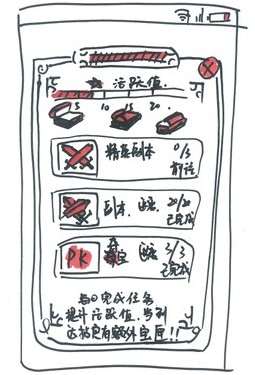 活跃值.
5 10 15 20
精英副本 0/3
前往
副本. 20/20
已完成
PK 3/3
已完成
每日完成任务
提升活跃值.
达指定有额外宝匣!!